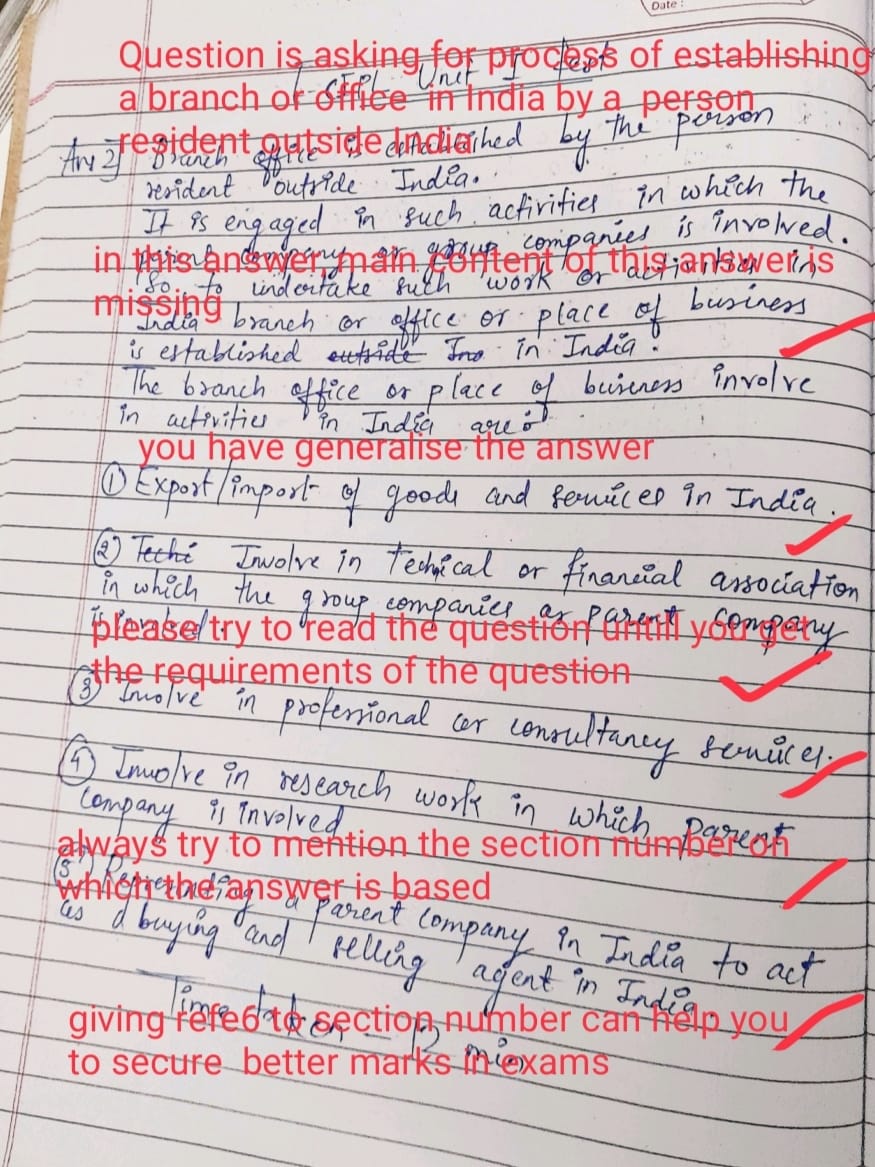 Date :
Question is asking for process of establishing
Unit I test
a branch or office in India by a person
resident outside India
Ans 2] Branch office is established by the person
resident outside India.
It is engaged in such activities in which the
parent company or group companies is involved.
in this answer main content of this answer is
So to undertake such work or activities in
missing
India branch or office or place of business
is established outside Ino in India.
The branch office or place of business involve
in activities in India are :
you have generalise the answer
① Export/import of goods and services in India.
② Techi Involve in technical or financial association
in which the group companies or parent company
is involved.
please try to read the question untill you get
the requirements of the question
③ Involve in professional or consultancy services.
④ Involve in research work in which parent
company is involved
always try to mention the section number on
which the answer is based
⑤ Representing a parent company in India to act
as a buying and selling agent in India.
Time taken - 12 min
giving refe6 to section number can help you
to secure better marks in exams